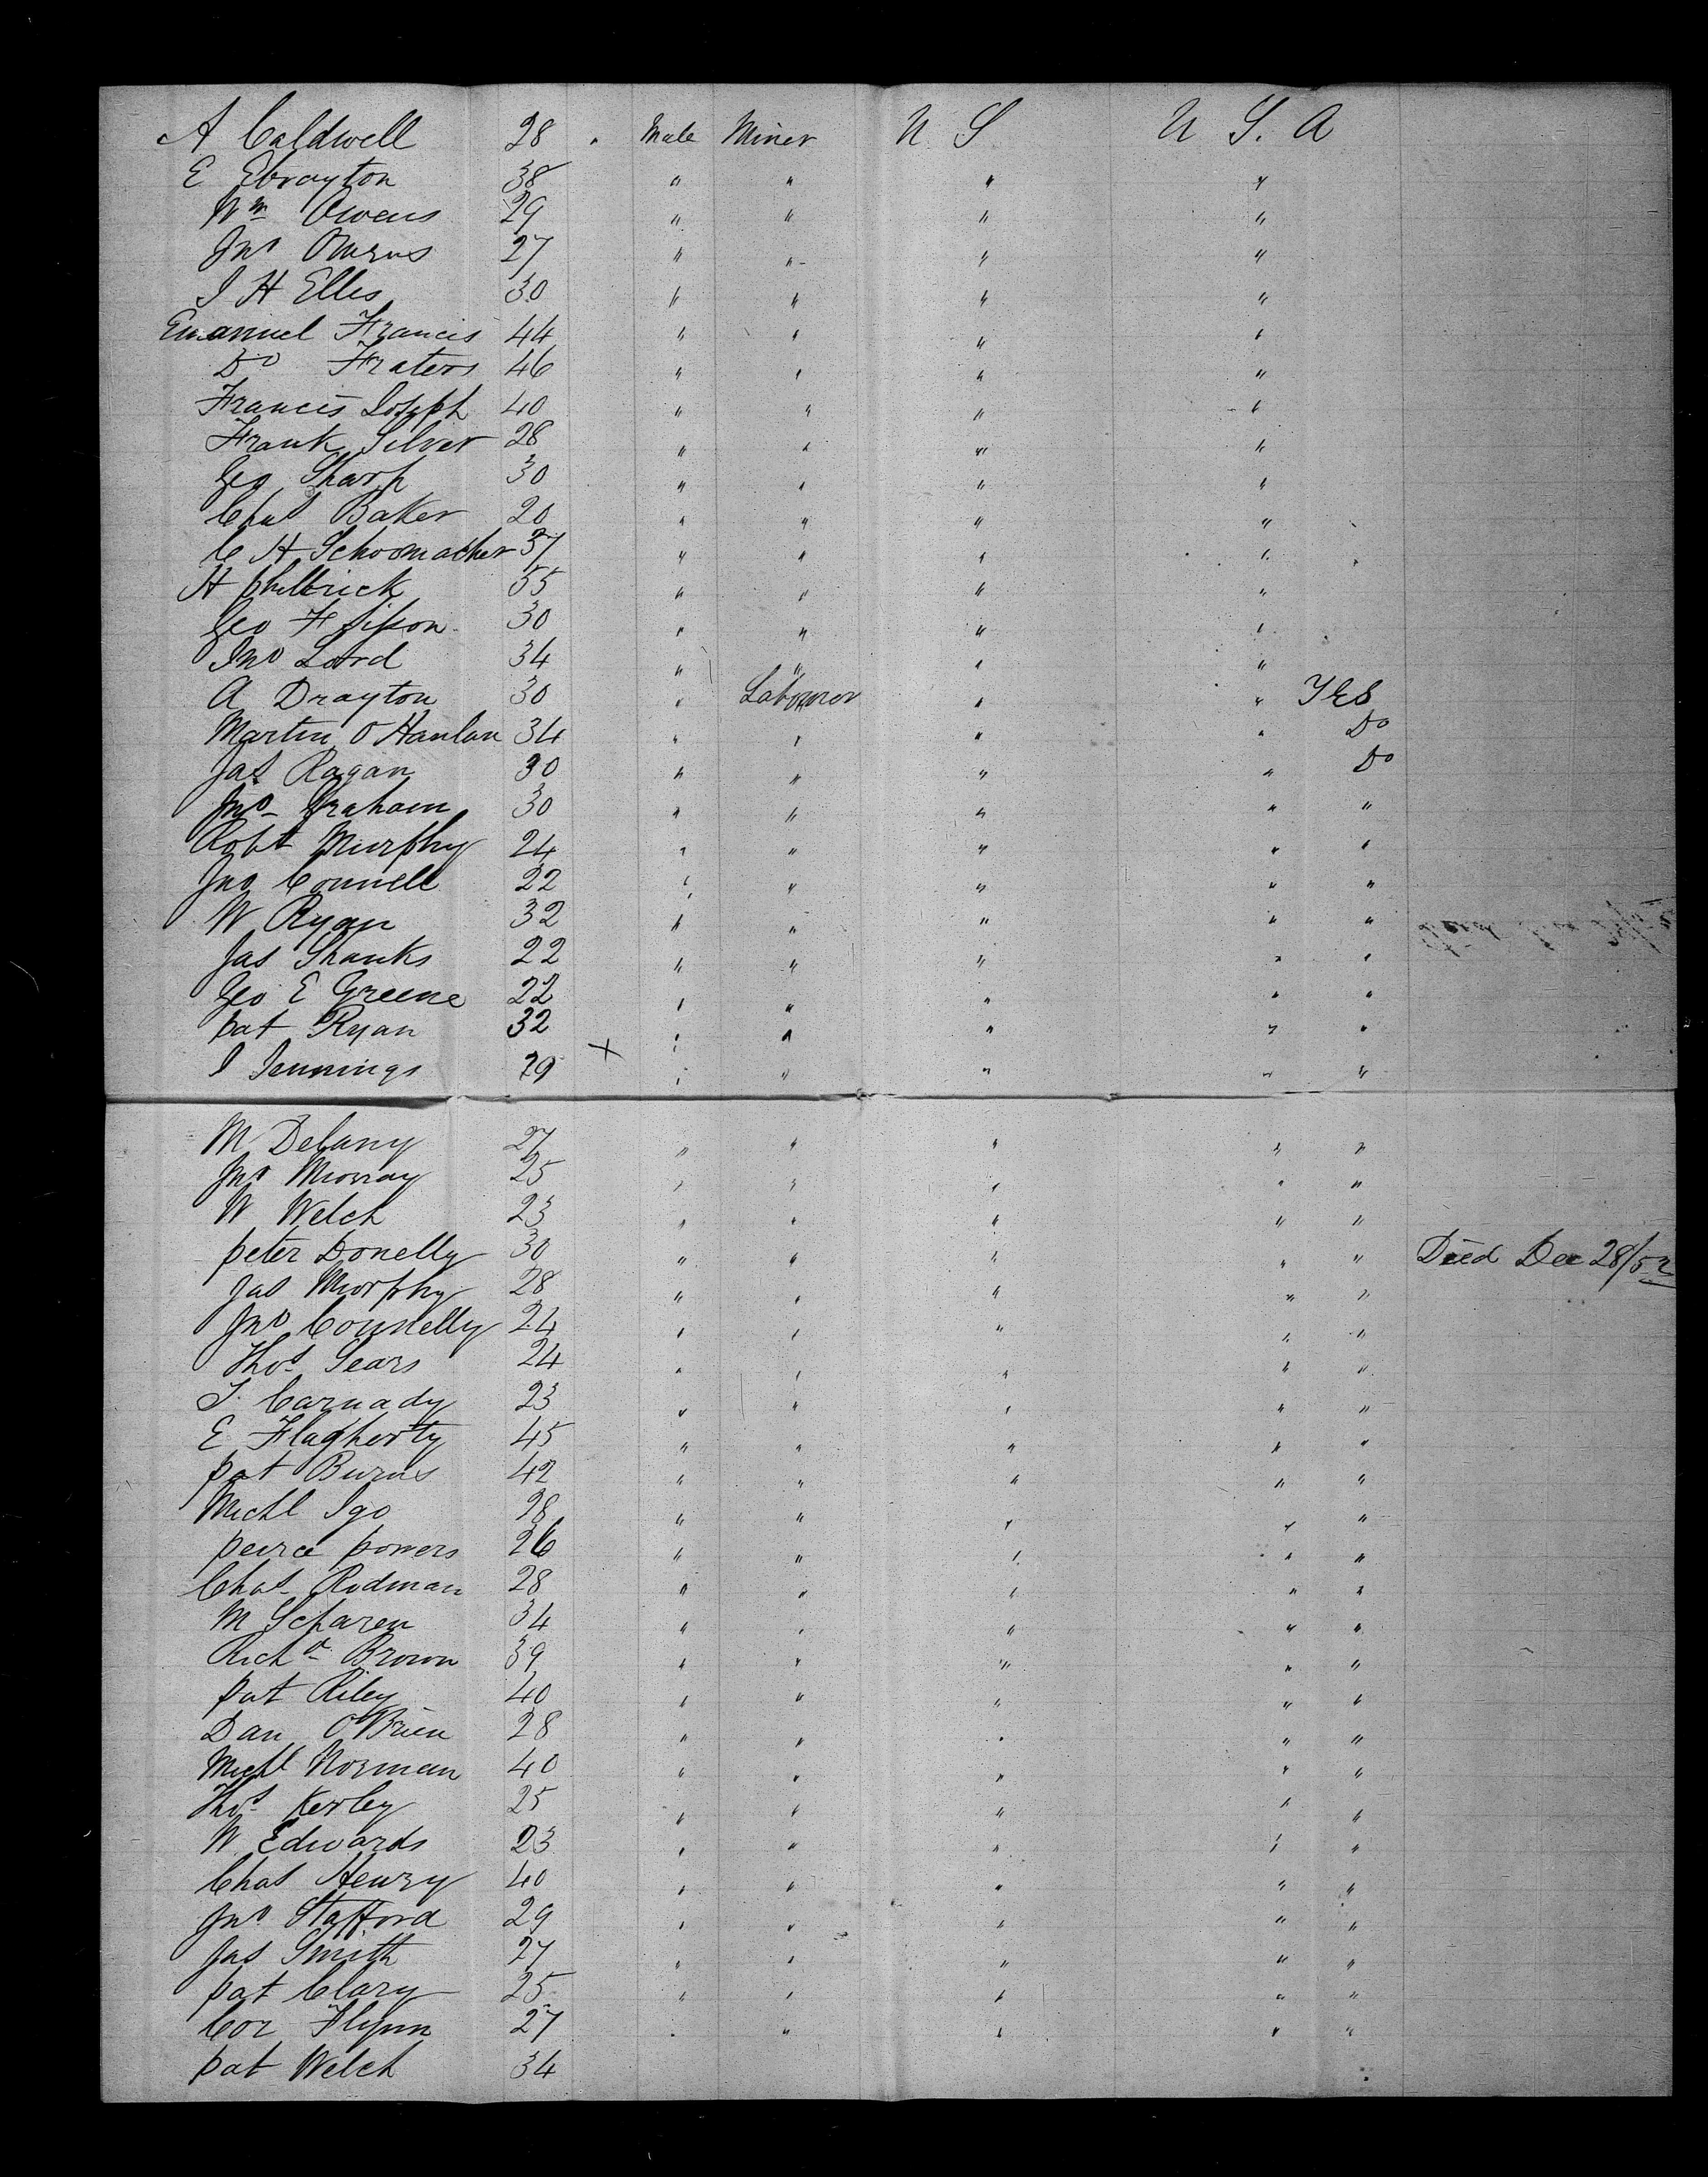 A Caldwell 28 " Male Miner U S U S. A
E Ebrayton 38 " " " "
Wm Owens 29 " " " "
Jno Owens 27 " " " "
I H Elles 30 " " " "
Emanuel Francis 44 " " " "
Do Fraters 46 " " " "
Francis Joseph 40 " " " "
Frank Silver 28 " " " "
Geo Sharp 30 " " " "
Chas Baker 20 " " " "
C H Schoomacher 37 " " " "
H philbrick 55 " " " "
Geo F Sisson 30 " " " "
Jno Lord 34 " " " "
A Drayton 30 " Labourer " " Yes
Martin O Hanlan 34 " " " " Do
Jas Ragan 30 " " " " Do
Jno Graham 30 " " " " "
Robt Murphy 24 " " " " "
Jno Connell 22 " " " " "
W Ryan 32 " " " " "
Jas Shanks 22 " " " " "
Geo E Greene 22 " " " " "
pat Ryan 32 " " " " "
I Jennings 29 x " " " " "
M Delany 27 " " " " "
Jno Murray 25 " " " " "
W Welch 23 " " " " "
peter Donelly 30 " " " " " Died Dec 28/52
Jas Murphy 28 " " " " "
Jno Connelly 24 " " " " "
Thos Sears 24 " " " " "
T. Carnady 23 " " " " "
E Flagherty 45 " " " " "
pat Burns 42 " " " " "
Michl Igo 28 " " " " "
peirce powers 26 " " " " "
Chas Rodman 28 " " " " "
M Scharen 34 " " " " "
Richd Brown 39 " " " " "
pat Riley 40 " " " " "
Dan O'Brien 28 " " " " "
Michl Norman 40 " " " " "
Thos Kerley 25 " " " " "
W Edwards 23 " " " " "
Chas Henry 40 " " " " "
Jno Stafford 29 " " " " "
Jas Smith 27 " " " " "
pat Clary 25 " " " " "
Cor Flynn 27 " " " " "
pat Welch 34